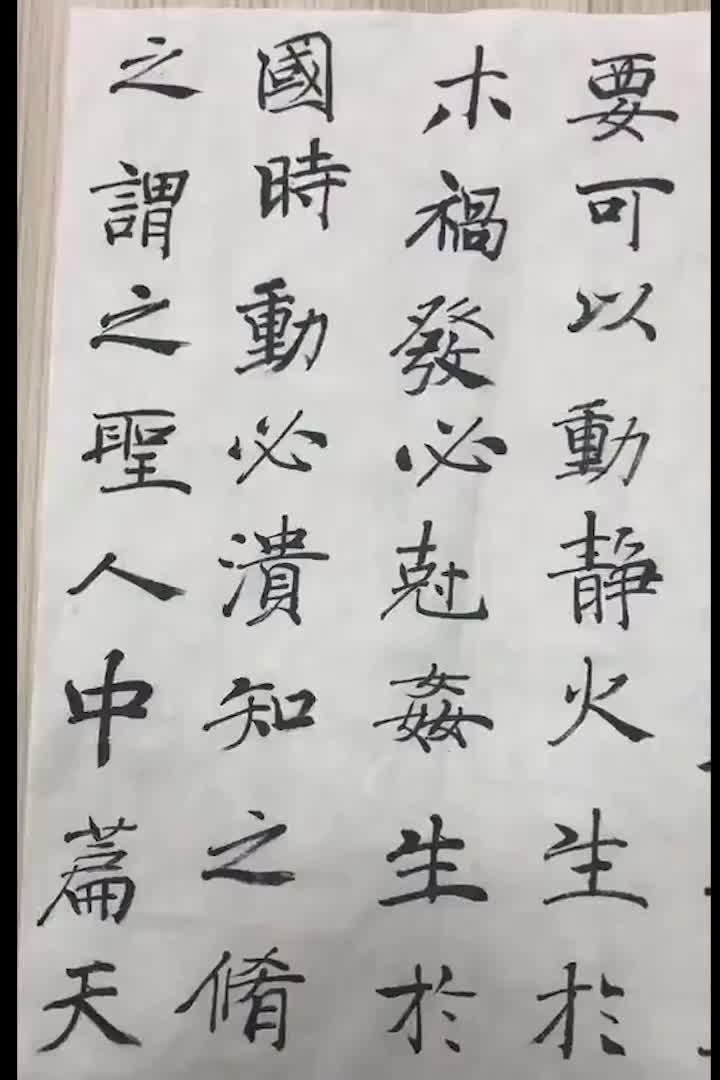 要可以動靜火生於
木禍發必尅姦生於
國時動必潰知之脩
之謂之聖人中篇天